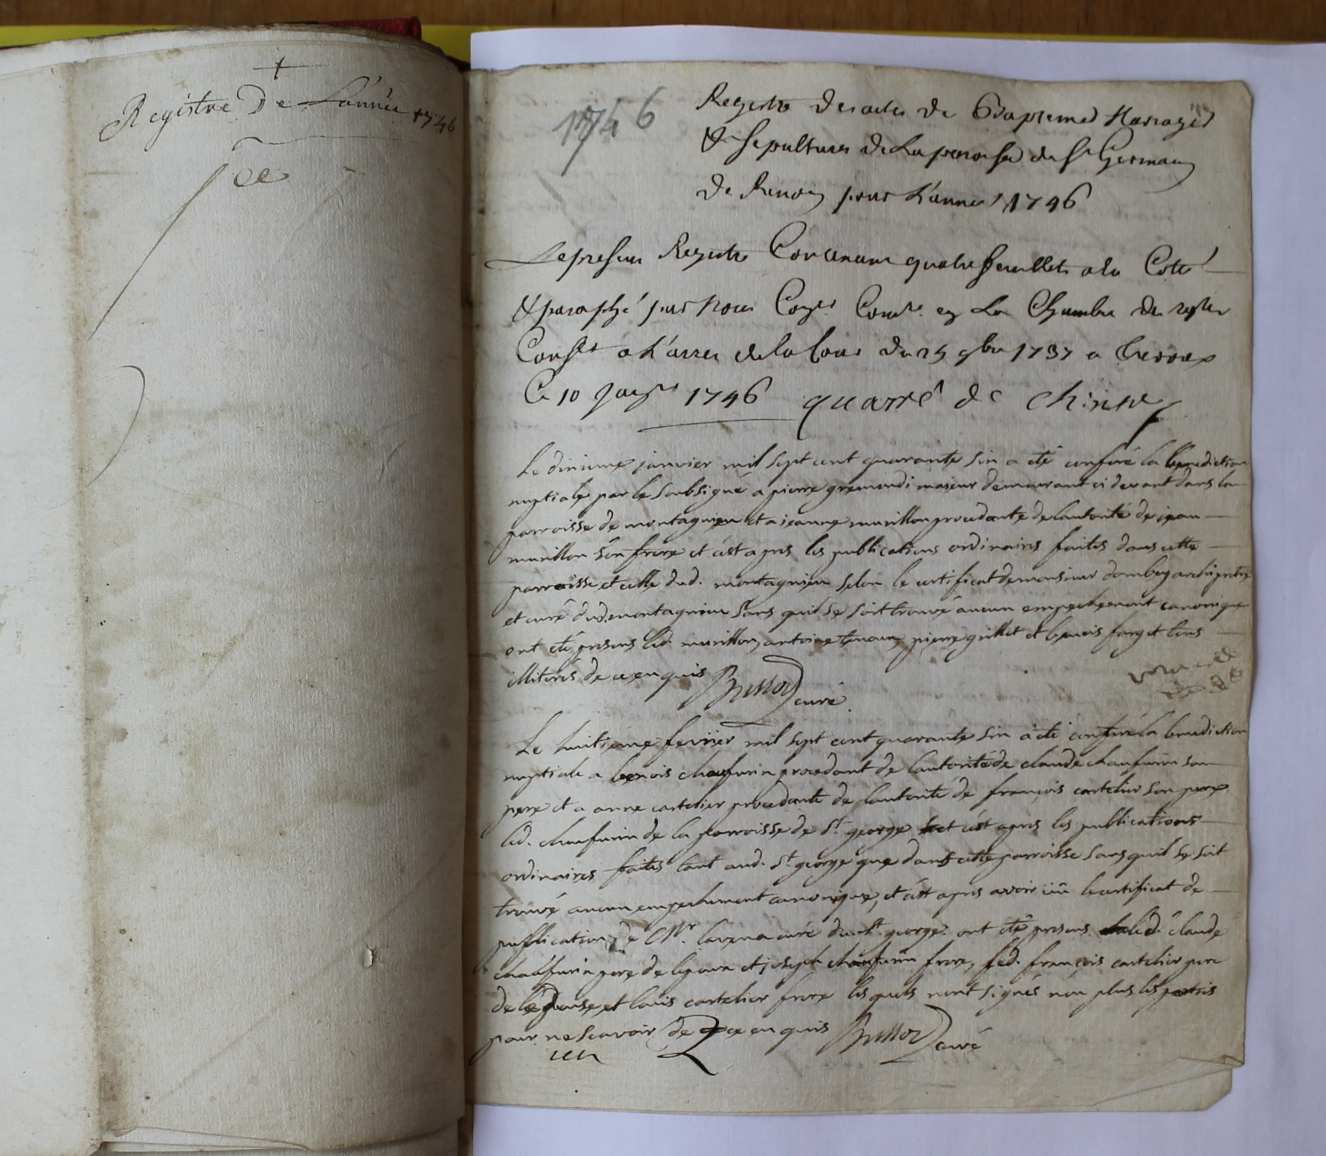 Registre De Lannée 1746
1746
Registre des actes de Baptemes Mariages
& sepultures de La paroisse de St Germain
de Renon pour L'année 1746
Le present Registre Contenant quatre feuillets a été Coté
& paraphé par Nous Conr. en La Chambre des
a L'arret de la Cour du 25 9bre 1737 a Trevoux
Ce 10 Janvr 1746 quarré de
Le dixieme janvier mil sept cent quarante six a été conferé la benediction
nuptiale par le soubsigné a pierre masieur demeurant ci devant dans la
parroisse de montagnieu et a jeanne murillon procedante de lautorité de jean
murillon son frere et c'est apres les publications ordinaires faites dans cette
parroisse et celle dud. montagnieu selon le certificat de monsieur archipretre
et curé dud montagnieu sans quil se soit trouvé aucun empechement canonique
ont été presens led murillon, antoine pierre grillet et benois farget tous
illiterés de ce enquis Bussod curé.
Le huitieme fevrier mil sept cent quarante six a été conferé la benediction
nuptiale a benois chanfurin procedant de lautorité de claude chanfurin son
pere et a anne cartelier procedante de lautorité de françois cartelier son pere
led. chanfurin de la parroisse de St. george et c'est apres les publications
ordinaires faites tant aud. St. george que dans cette parroisse sans quil se soit
trouvé aucun empechement canonique, et c'est apres avoir vû le certificat de
publication de Mr. curé dud St. george. ont été presens led. claude
chanfurin pere de lepoux et joseph chanfurin frere, led. françois cartelier pere
de lépouse, et louis cartelier frere lesquels nont signés non plus les partis
pour ne scavoir de ce enquis Bussod curé